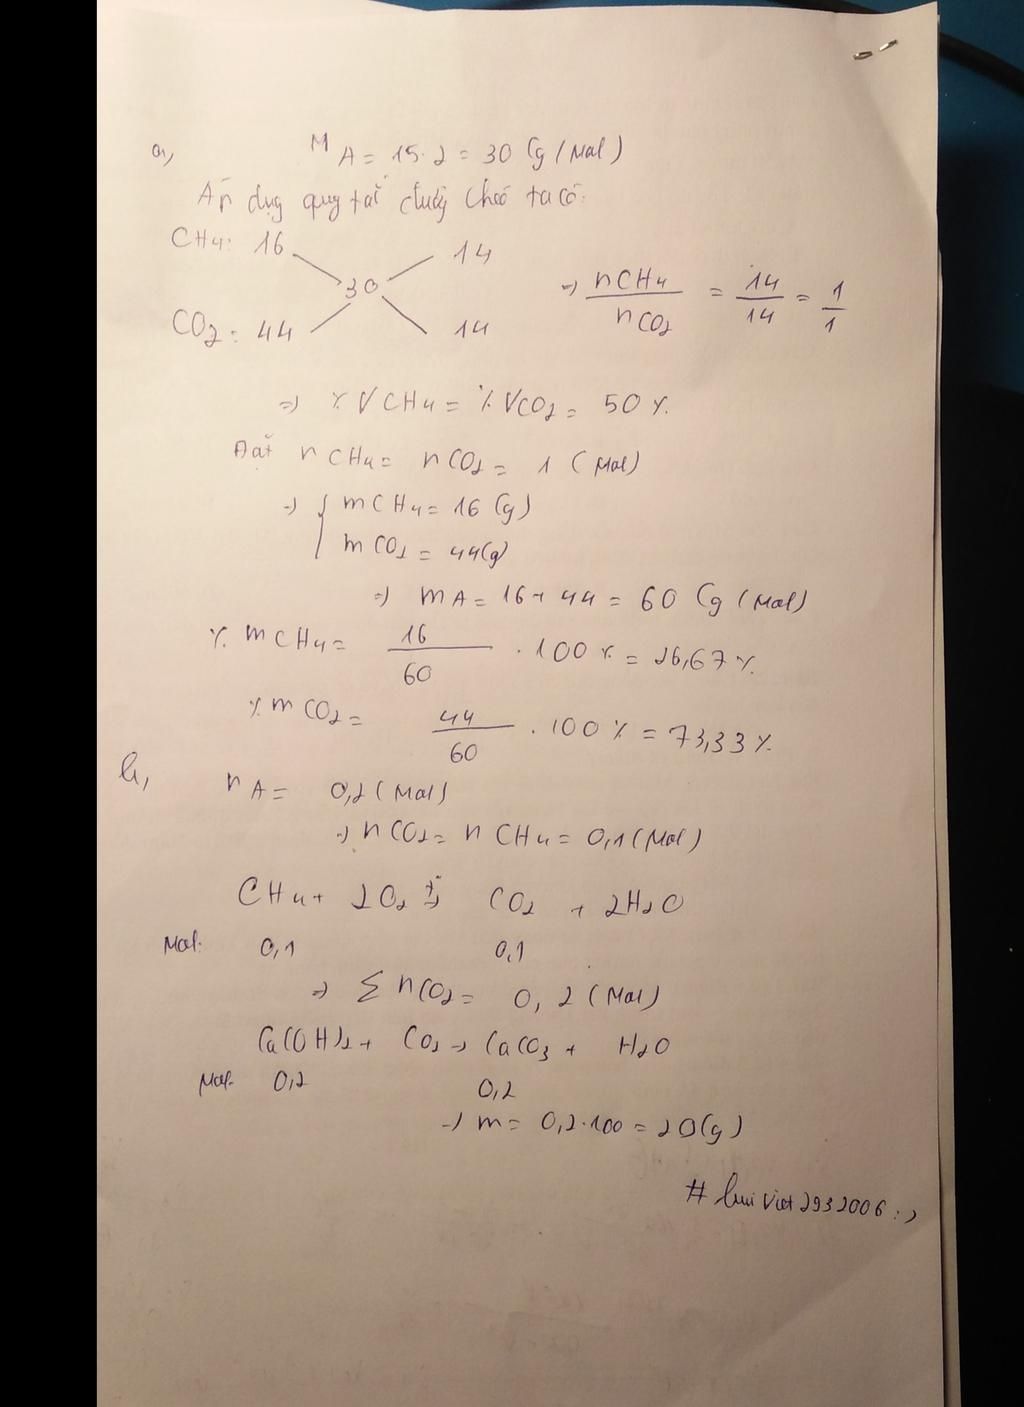 a, M A = 15.2 = 30 (g/mol)
Áp dụng quy tắc đường chéo ta có:
CH4: 16 14
30 => nCH4 / nCO2 = 14/14 = 1/1
CO2: 44 14
=> % VCH4 = % VCO2 = 50 %
Đặt nCH4 = nCO2 = 1 (mol)
=> { mCH4 = 16 (g)
mCO2 = 44(g)
=> mA = 16 + 44 = 60 (g/mol)
% mCH4 = 16/60 . 100 % = 26,67 %
% mCO2 = 44/60 . 100 % = 73,33 %
b, nA = 0,2 (mol)
=> nCO2 = nCH4 = 0,1 (mol)
CH4 + 2O2 t° -> CO2 + 2H2O
Mol: 0,1 0,1
=> Σ nCO2 = 0,2 (mol)
Ca(OH)2 + CO2 -> CaCO3 + H2O
Mol: 0,2 0,2
-> m = 0,2.100 = 20(g)
# buiviet2932006 :)